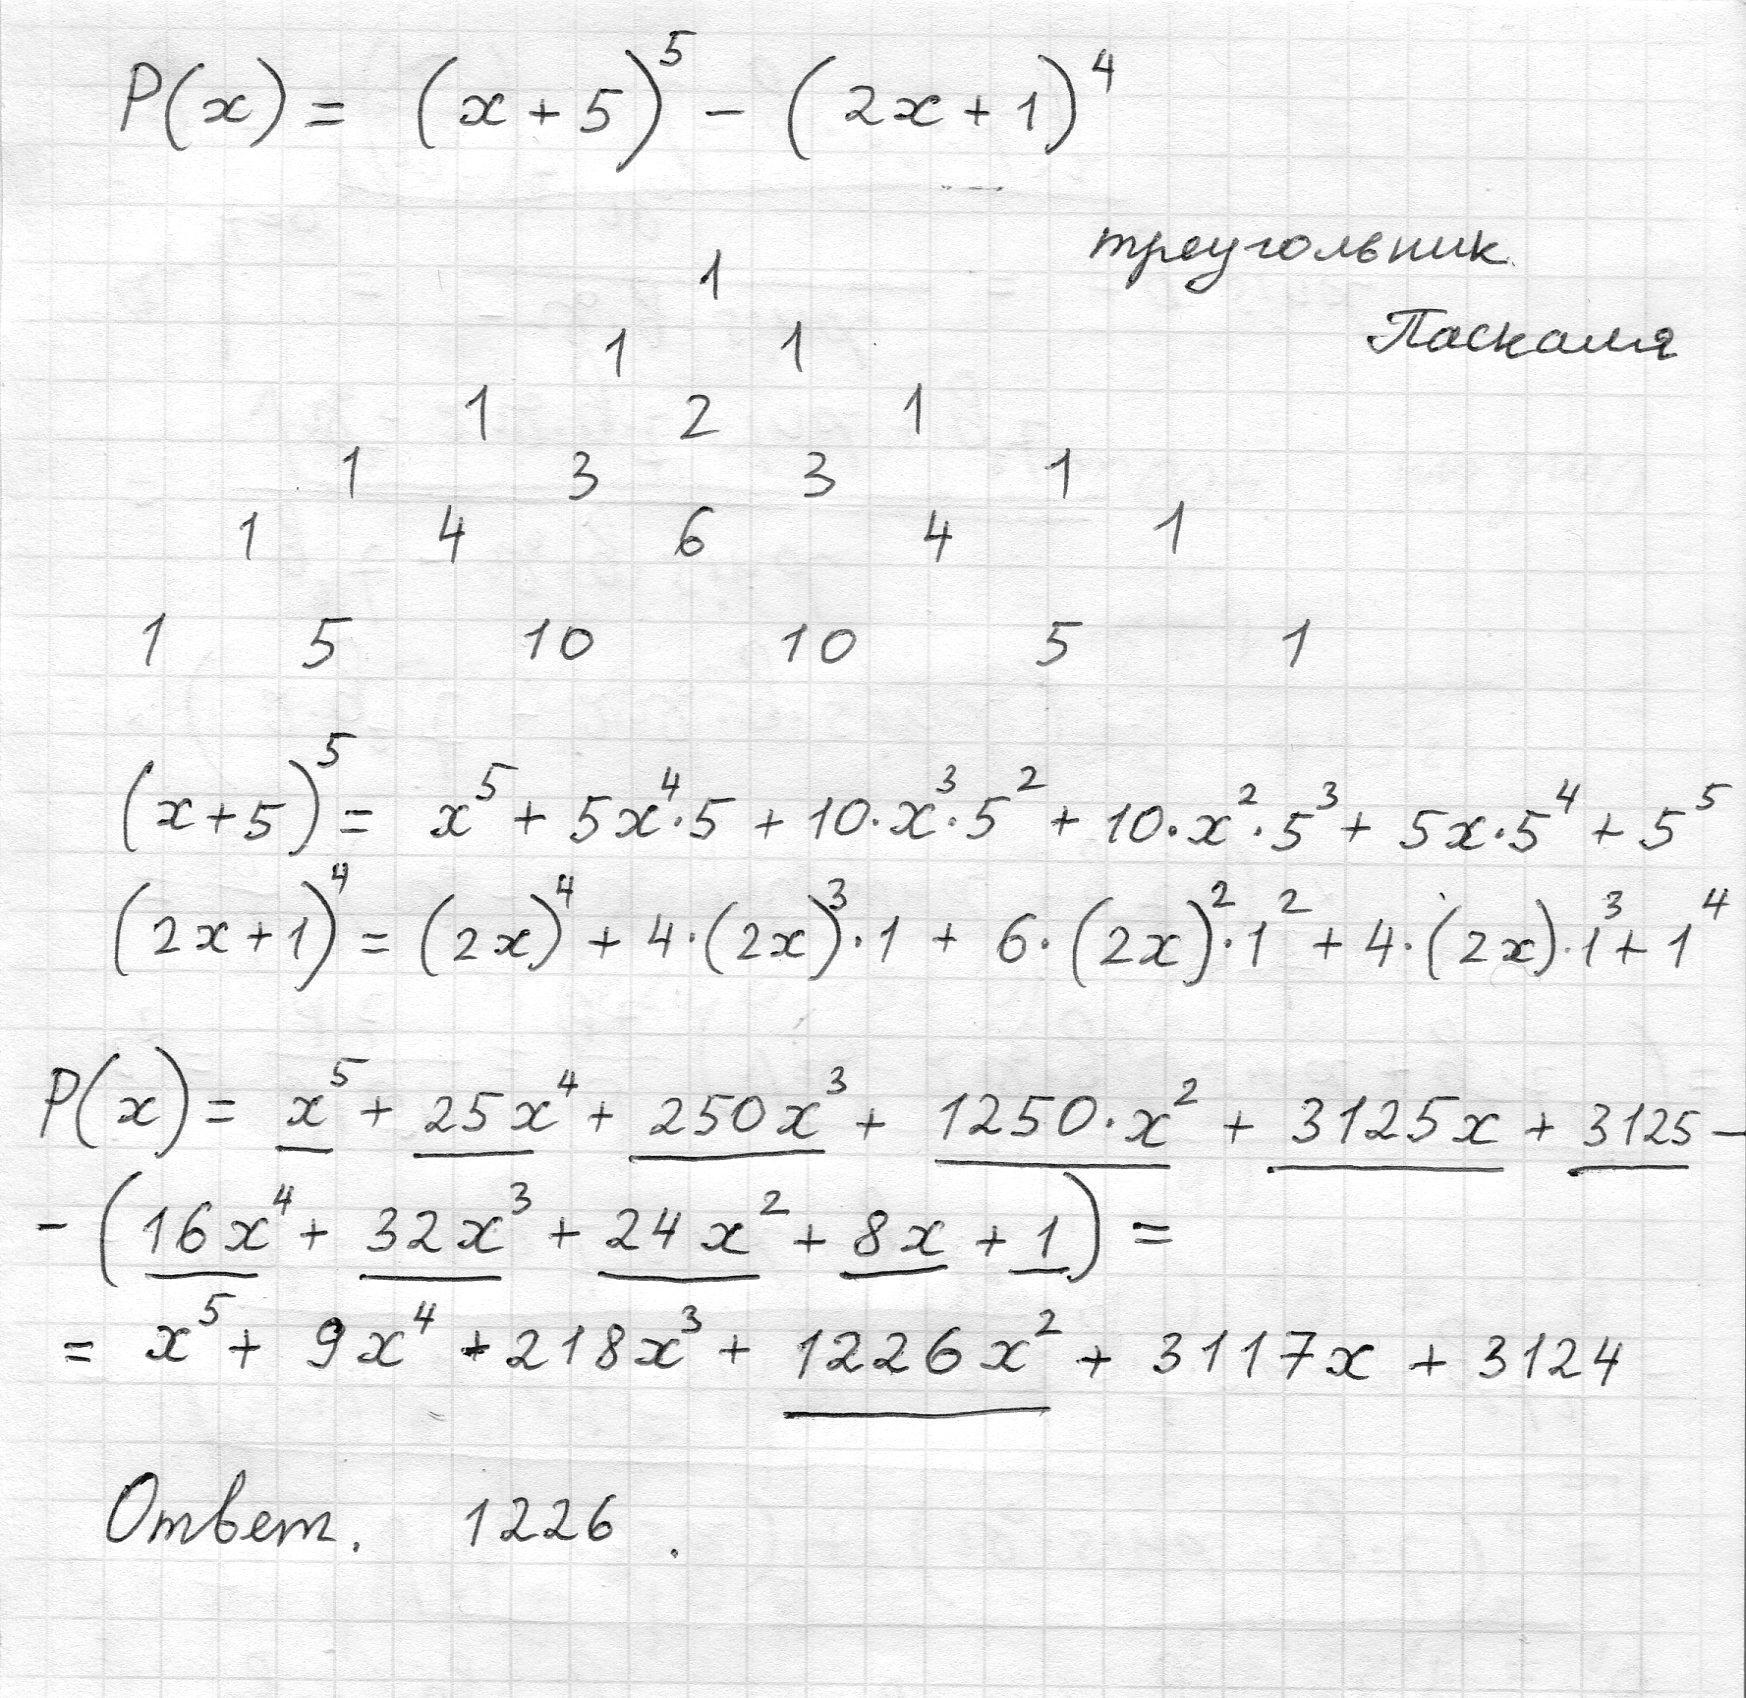 P(x) = (x+5)⁵ − (2x+1)⁴
треугольник
Паскаля
1
1 1
1 2 1
1 3 3 1
1 4 6 4 1
1 5 10 10 5 1
(x+5)⁵ = x⁵ + 5x⁴·5 + 10·x³·5² + 10·x²·5³ + 5x·5⁴ + 5⁵
(2x+1)⁴ = (2x)⁴ + 4·(2x)³·1 + 6·(2x)²·1² + 4·(2x)·1³ + 1⁴
P(x) = x⁵ + 25x⁴ + 250x³ + 1250·x² + 3125x + 3125 −
− (16x⁴ + 32x³ + 24x² + 8x + 1) =
= x⁵ + 9x⁴ + 218x³ + 1226x² + 3117x + 3124
Ответ. 1226.